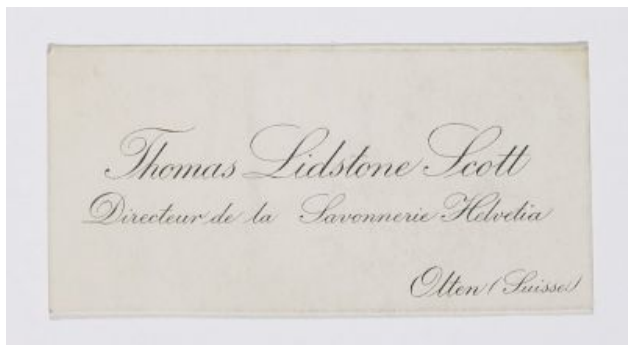 Thomas Lidstone Scott
Directeur de la Savonnerie Helvetia
Olten (Suisse)